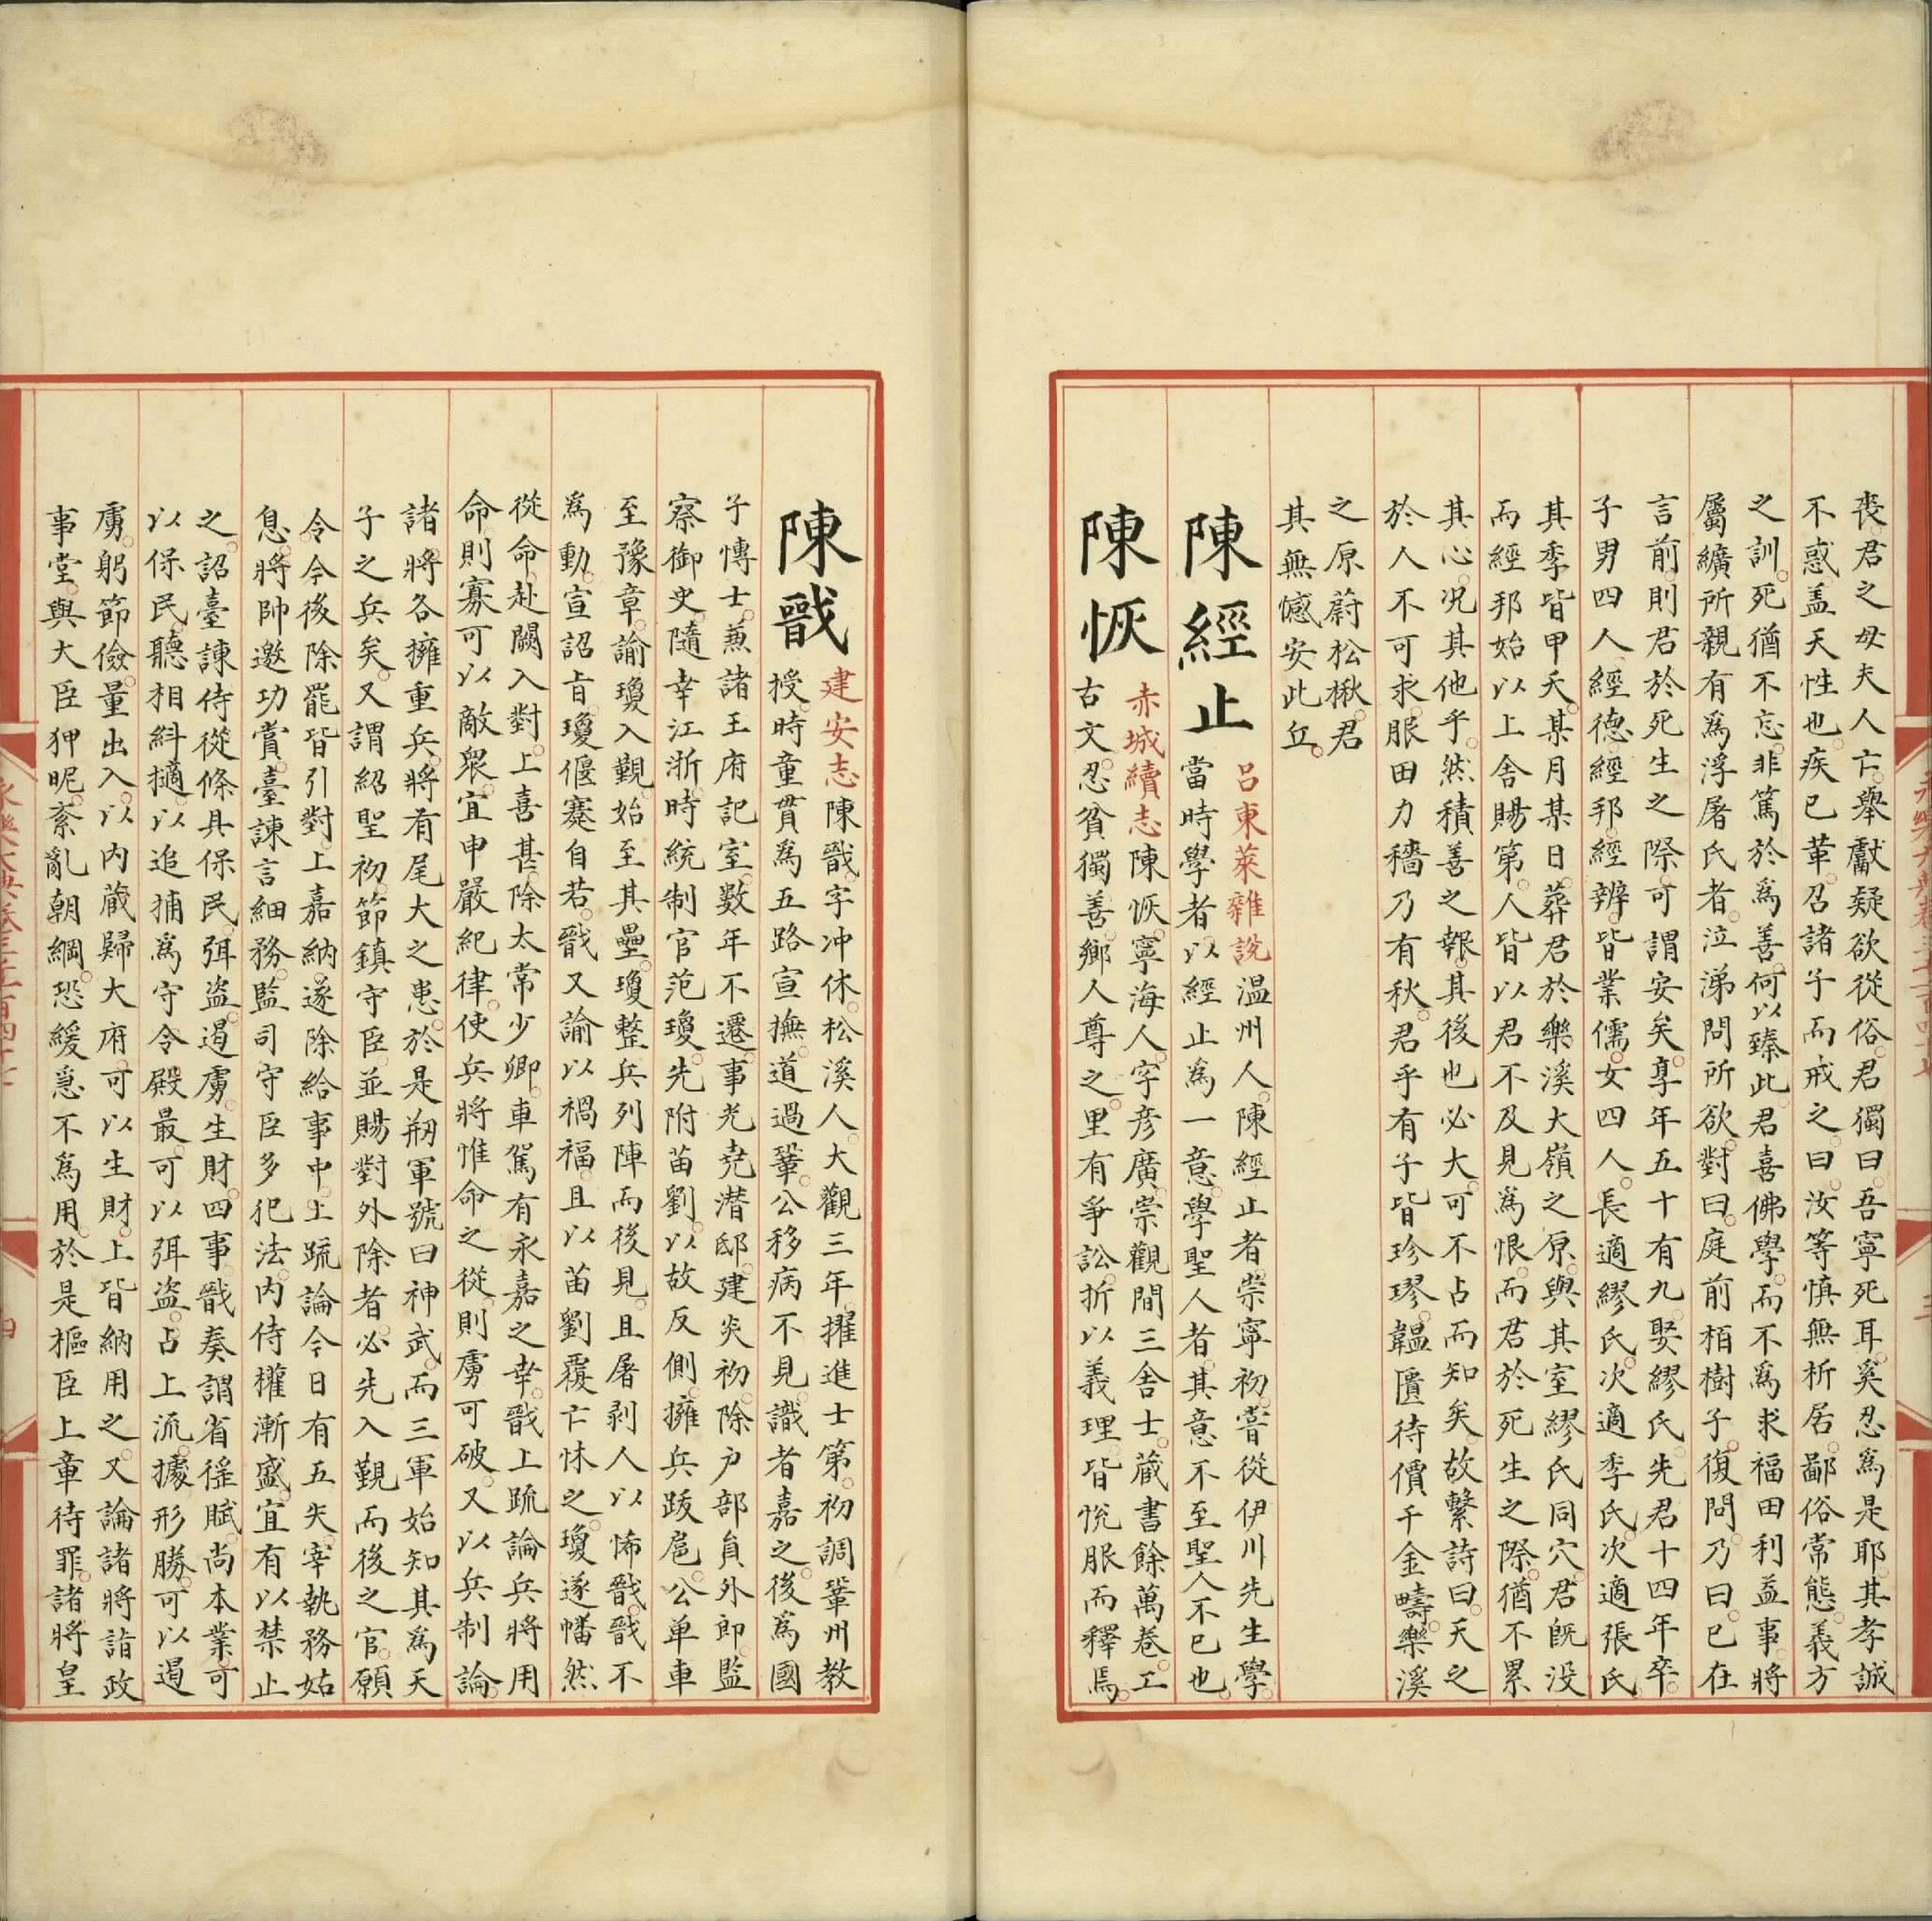 喪君之母夫人亡舉獻疑欲從俗君獨曰吾寧死耳奚忍爲是耶其孝誠
不惑盖天性也疾已革召諸子而戒之曰汝等慎無析居鄙俗常態義方
之訓死猶不忘非篤於爲善何以臻此君喜佛學而不爲求福田利益事將
屬纊所親有爲浮屠氏者泣涕問所欲對曰庭前栢樹子復問乃曰已在
言前則君於死生之際可謂安矣享年五十有九娶繆氏先君十四年卒
子男四人經德經邦經辨皆業儒女四人長適繆氏次適李氏次適張氏
其季皆甲夭某月某日葬君於樂溪大嶺之原與其室繆氏同穴君旣没
而經邦始以上舍賜第人皆以君不及見爲恨而君於死生之際猶不累
其心况其他乎然積善之報其後也必大可不占而知矣故繫詩曰天之
於人不可求服田力穡乃有秋君乎有子皆珍璆韞匵待價千金疇樂溪
之原蔚松楸君
其無憾安此丘
陳經止
吕東萊雜說温州人陳經止者崇寧初嘗從伊川先生學
當時學者以經止爲一意學聖人者其意不至聖人不已也
陳恢
赤城續志陳恢寧海人字彦廣崇觀間三舍士藏書餘萬卷工
古文忍貧獨善鄉人尊之里有爭訟折以義理皆悅服而釋焉
陳戬
建安志陳戬字冲休松溪人大觀三年擢進士第初調鞏州教
授時童貫爲五路宣撫道過鞏公移病不見識者嘉之後爲國
子博士蒹諸王府記室數年不遷事光堯潛邸建炎初除户部員外郎監
察御史隨幸江浙時統制官范瓊先附苗劉以故反側擁兵跋扈公单車
至豫章諭瓊入覲始至其壘瓊整兵列陣而後見且屠剥人以怖戬戬不
爲動宣詔㫖瓊偃蹇自若戬又諭以禍福且以苗劉覆亡怵之瓊遂幡然
從命赴闕入對上喜甚除太常少卿車駕有永嘉之幸戬上疏論兵將用
命則寡可以敵衆宜申嚴紀律使兵將惟命之從則虜可破又以兵制論
諸將各擁重兵將有尾大之患於是剏軍號曰神武而三軍始知其爲天
子之兵矣又謂紹聖初節鎮守臣並賜對外除者必先入覲而後之官願
令今後除罷皆引對上嘉納遂除給事中上疏論今日有五失宰執務姑
息將帥邀功賞臺諫言細務監司守臣多犯法内侍權漸盛宜有以禁止
之詔臺諫侍從條具保民弭盗遏虜生財四事戬奏謂省徭賦尚本業可
以保民聽相糾擿以追捕爲守令殿最可以弭盗占上流據形勝可以遏
虜躬節儉量出入以内藏歸大府可以生財上皆納用之又論諸將詣政
事堂與大臣狎昵紊亂朝綱恐緩急不爲用於是樞臣上章待罪諸將皇